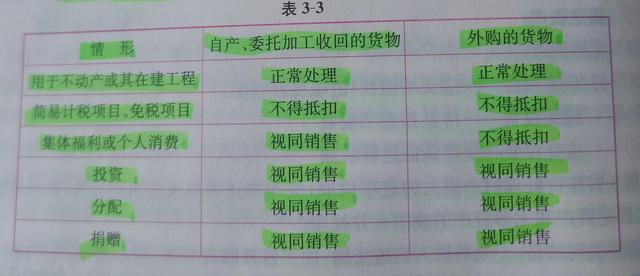 表 3-3
情形 自产、委托加工收回的货物 外购的货物
用于不动产或其在建工程 正常处理 正常处理
简易计税项目、免税项目 不得抵扣 不得抵扣
集体福利或个人消费 视同销售 不得抵扣
投资 视同销售 视同销售
分配 视同销售 视同销售
捐赠 视同销售 视同销售